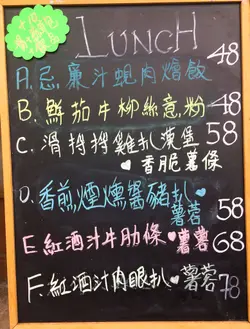 LUNCH 48
A. 忌廉汁蜆肉燴飯
B. 鮮茄牛柳絲意粉 48
C. 滑捋捋雞扒漢堡 58
香脆薯條
D. 香煎煙燻醬豬扒
薯蓉 58
E. 紅酒汁牛肋條 薯蓉 68
F. 紅酒汁肉眼扒 薯蓉 78